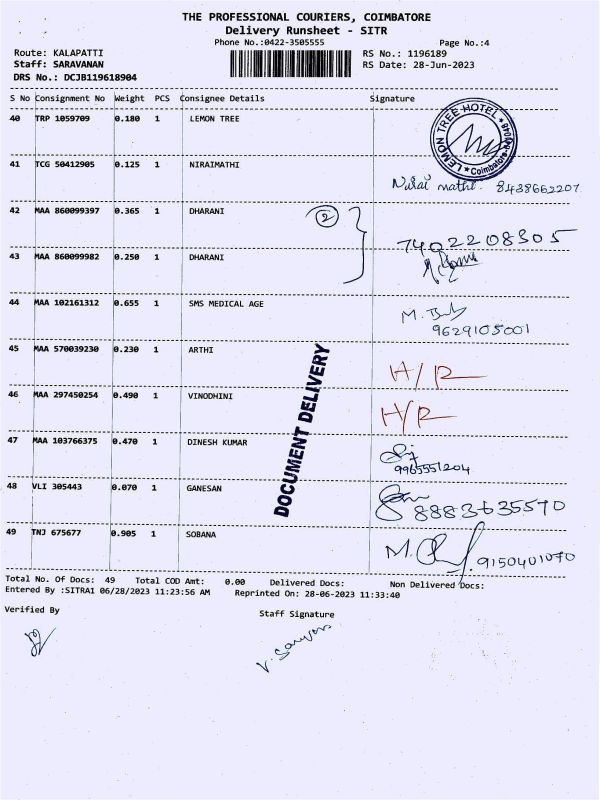 THE PROFESSIONAL COURIERS, COIMBATORE
Delivery Runsheet - SITR
Phone No.:0422-3505555 Page No.:4
Route: KALAPATTI RS No.: 1196189
Staff: SARAVANAN RS Date: 28-Jun-2023
DRS No.: DCJB119618904
S No Consignment No Weight PCS Consignee Details Signature
40 TRP 1059709 0.180 1 LEMON TREE
LEMON TREE HOTEL
Coimbatore
41 TCG 50412905 0.125 1 NIRAIMATHI
Nirai mathi. 8438662207
42 MAA 860099397 0.365 1 DHARANI 2
7402208305
43 MAA 860099982 0.250 1 DHARANI
44 MAA 102161312 0.655 1 SMS MEDICAL AGE
9629105001
45 MAA 570039230 0.230 1 ARTHI H/R
46 MAA 297450254 0.490 1 VINODHINI H/R
47 MAA 103766375 0.470 1 DINESH KUMAR
9965551204
48 VLI 305443 0.070 1 GANESAN
8883635570
49 TNJ 675677 0.905 1 SOBANA
9150401070
DOCUMENT DELIVERY
Total No. Of Docs: 49 Total COD Amt: 0.00 Delivered Docs: Non Delivered Docs:
Entered By :SITRA1 06/28/2023 11:23:56 AM Reprinted On: 28-06-2023 11:33:40
Verified By Staff Signature